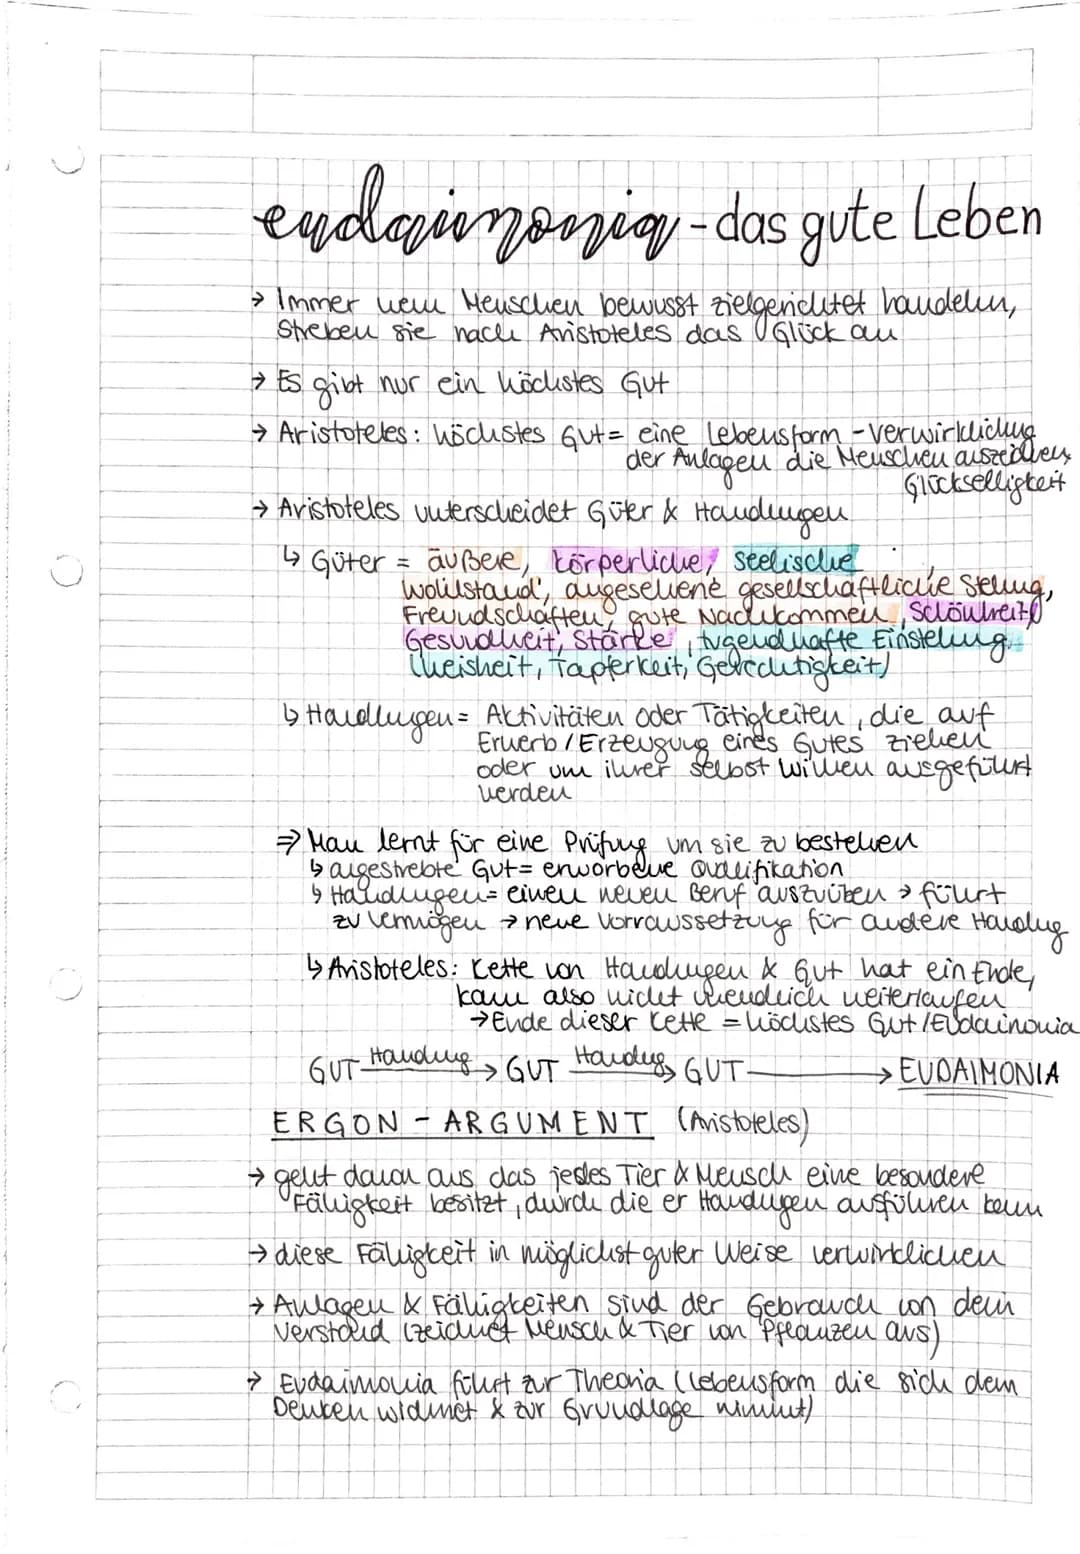 eudaimonia - das gute Leben
→ Immer wenn Menschen bewusst zielgerichtet handeln,
streben sie nach Aristoteles das Glück an
→ Es gibt nur ein höchstes Gut
→ Aristoteles: höchstes Gut = eine Lebensform - Verwirklichung
der Anlagen die Menschen auszeichnen,
Glückselligkeit
→ Aristoteles unterscheidet Güter & Handlungen
↳ Güter = äußere, körperliche, seelische
Wohlstand, angesehene gesellschaftliche Stellung,
Freundschaften, gute Nachkommen, Schönheit,
Gesundheit, Stärke, tugendhafte Einstellung
(Weisheit, Tapferkeit, Gerechtigkeit)
↳ Handlungen = Aktivitäten oder Tätigkeiten, die auf
Erwerb / Erzeugung eines Gutes ziehen
oder um ihrer selbst willen ausgeführt
werden
⇒ Man lernt für eine Prüfung um sie zu bestehen
↳ angestrebte Gut = erworbene Qualifikation
↳ Handlungen = einen neuen Beruf auszuüben → führt
zu Vermögen → neue Vorraussetzung für andere Handlug
↳ Aristoteles: Kette von Handlungen & Gut hat ein Ende,
kann also nicht unendlich weiterlaufen
→ Ende dieser Kette = höchstes Gut / Eudainonia
GUT Handlung → GUT Handlug → GUT → EUDAIMONIA
ERGON - ARGUMENT (Aristoteles)
→ geht davon aus, das jedes Tier & Mensch eine besondere
Fähigkeit besitzt, durch die er Handlugen ausführen kann
→ diese Fähigkeit in möglichst guter Weise verwirklichen
→ Anlagen & Fähigkeiten sind der Gebrauch von dem
Verstand (zeichnet Mensch & Tier von Pflanzen aus)
→ Eudaimonia führt zur Theoria (Lebensform die sich dem
Denken widmet & zur Grundlage nimmt)